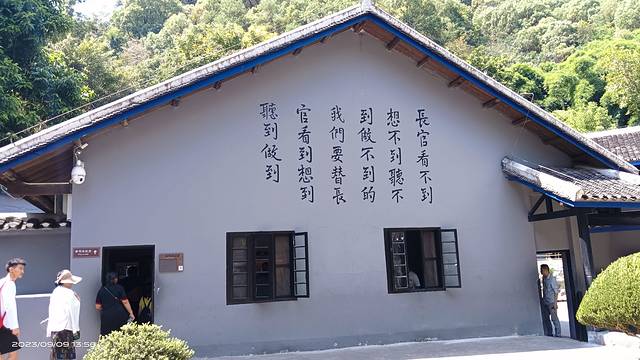 長官看不到
想不到聽不
到做不到的
我們要替長
官看到想到
聽到做到
2023/09/09 13:58